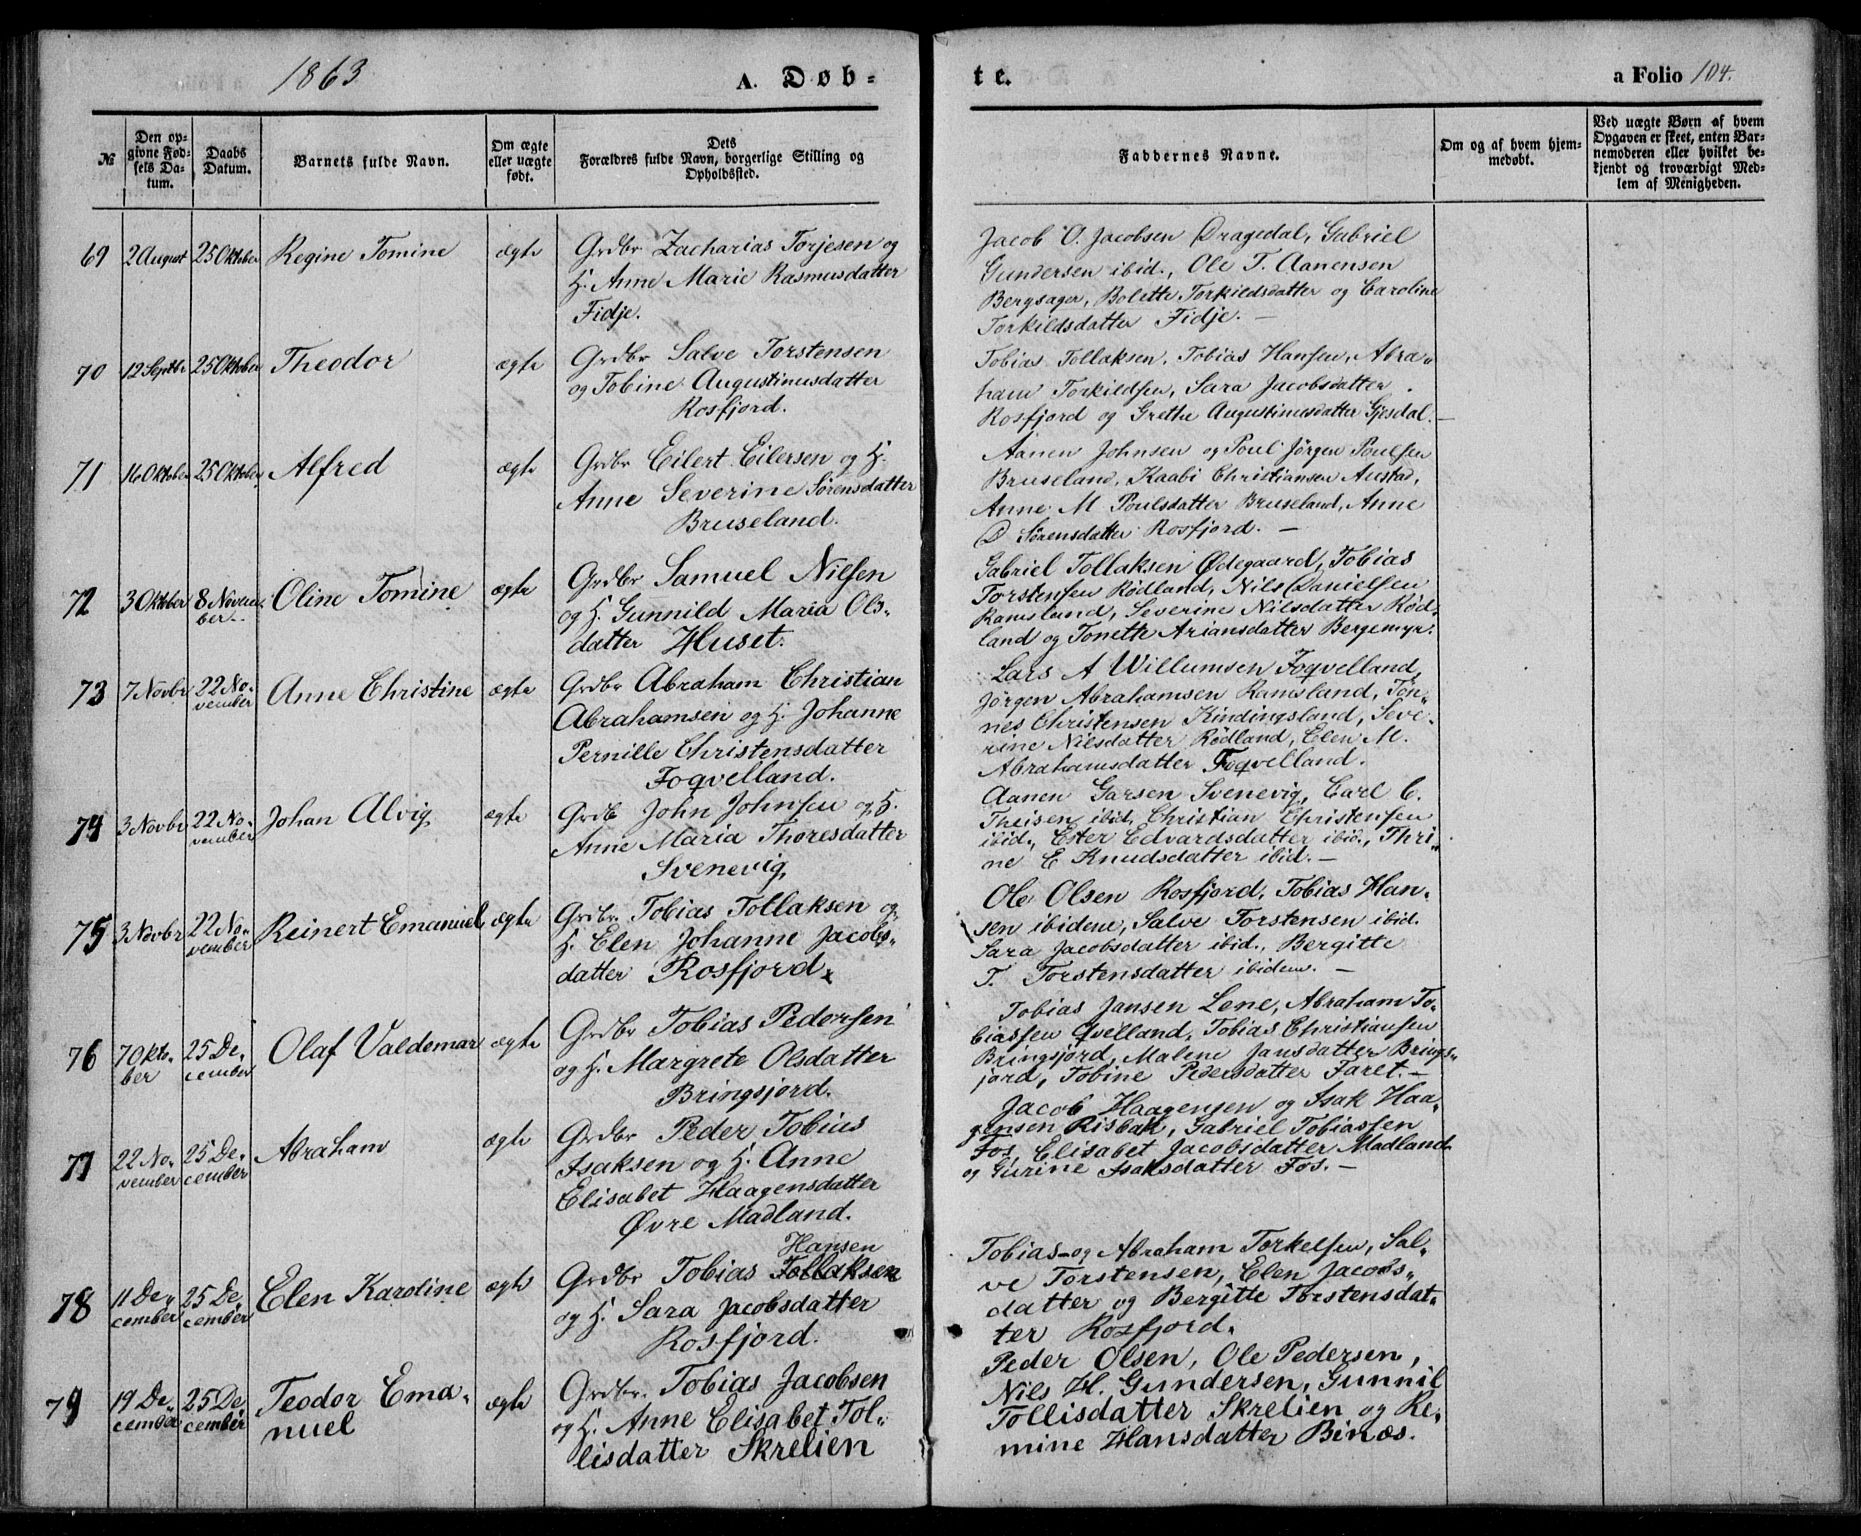 1863
A. Døb-
te.
a Folio 104.
№
Den op-
givne Fød-
sels Da-
tum.
Daabs
Datum.
Barnets fulde Navn.
Om ægte
eller uægte
født.
Dets
Forældres fulde Navn, borgerlige Stilling og
Opholdssted.
Faddernes Navne.
Om og af hvem hjem-
medøbt.
Ved uægte Børn af hvem
Opgaven er skeet, enten Bar-
nemoderen eller hvilket be-
kjendt og troværdigt Med-
lem af Menigheden.
69 2 August 25 Oktober Regine Tomine ægte
Grdbr Zacharias Torjesen og
H. Anne Marie Rasmusdatter
Fidje.
Jacob O. Jacobsen Dragedal, Gabriel
Gundersen ibid., Ole T. Aanensen
Bergsager, Bolette Torkildsdatter og Caroline
Torkildsdatter Fidje. —
70 12 Septbr 25 Oktober Theodor ægte
Grdbr Salve Torstensen
og Tobine Augustinusdatter
Rosfjord.
Tobias Tollaksen, Tobias Hansen, Abra-
ham Torkildsen, Sara Jacobsdatter
Rosfjord og Grethe Augustinusdatter Gjesdal. —
71 16 Oktober 25 Oktober Alfred ægte
Grdbr Eilert Eilersen og H.
Anne Severine Sørensdatter
Bruseland.
Aanen Johnsen og Poul Jørgen Poulsen
Bruseland, Kaabi Christiansen Austad,
Anne M Poulsdatter Bruseland, Anne
D Sørensdatter Rosfjord. —
72 3 Oktober 8 Novem-
ber Oline Tomine ægte
Grdbr Samuel Nilsen
og H. Gunnild Maria Ols-
datter Huset.
Gabriel Tollaksen Ødegaard, Tobias
Torstensen Rødland, Nils Danielsen
Ramsland, Severine Nilsdatter Rød-
land og Tonette Ariansdatter Bergemyr.
73 7 Novbr 22 No-
vember Anne Christine ægte
Grdbr Abraham Christian
Abrahamsen og H. Johanne
Pernille Christensdatter
Foqvelland.
Lars A Willumsen Foqvelland,
Jørgen Abrahamsen Ramsland, Tøn-
nes Christensen Kindingsland, Seve-
rine Nilsdatter Rødland, Elen M.
Abrahamsdatter Foqvelland.
74 3 Novbr 22 No-
vember Johan Alvig ægte
Grdb John Johnsen og H.
Anne Maria Thoresdatter
Svenevig,
Aanen Garsen Svenevig, Carl C.
Theisen ibid, Christian Christensen
ibid., Ester Edvardsdatter ibid., Thri-
ne E Knudsdatter ibid. —
75 3 Novbr 22 No-
vember Reinert Emanuel, ægte
Grdbr. Tobias Tollaksen og
H. Elen Johanne Jacobs-
datter Rosfjord.
Ole Olsen Rosfjord, Tobias Han-
sen ibidem, Salve Torstensen ibid.
Sara Jacobsdatter ibid., Bergitte
T. Torstensdatter ibidem. —
76 7 Okto-
ber 25 De-
cember Olaf Valdemar ægte
Grdbr Tobias Pedersen
og H. Margrete Olsdatter
Bringsjord.
Tobias Jansen Lene, Abraham To-
biassen Qvelland, Tobias Christiansen
Bringsjord, Malene Jansdatter Brings-
jord, Tobine Pedersdatter Faret. —
77 22 No-
vember 25 De-
cember Abraham ægte
Grdbr Peder Tobias
Isaksen og H. Anne
Elisabet Haagensdatter
Øvre Madland.
Jacob Haagensen og Isak Haa-
gensen Risbak, Gabriel Tobiassen
Fos, Elisabet Jacobsdatter Madland
og Gurine Isaksdatter Fos. —
78 11 De-
cember 25 De-
cember Elen Karoline ægte
Hansen
Grdbr Tobias Tollaksen
og H. Sara Jacobsdatter
Rosfjord.
Tobias og Abraham Torkelsen, Sal-
ve Torstensen, Elen Jacobs-
datter og Bergitte Torstensdat-
ter Rosfjord.
79 19 De-
cember 25 De-
cember Teodor Ema-
nuel ægte
Grdbr. Tobias Jacobsen
og H. Anne Elisabet Tol-
lisdatter Skrelien
Peder Olsen, Ole Pedersen,
Nils H. Gundersen, Gunnil
Tollisdatter Skrelien og Re-
mine Hansdatter Binæs.